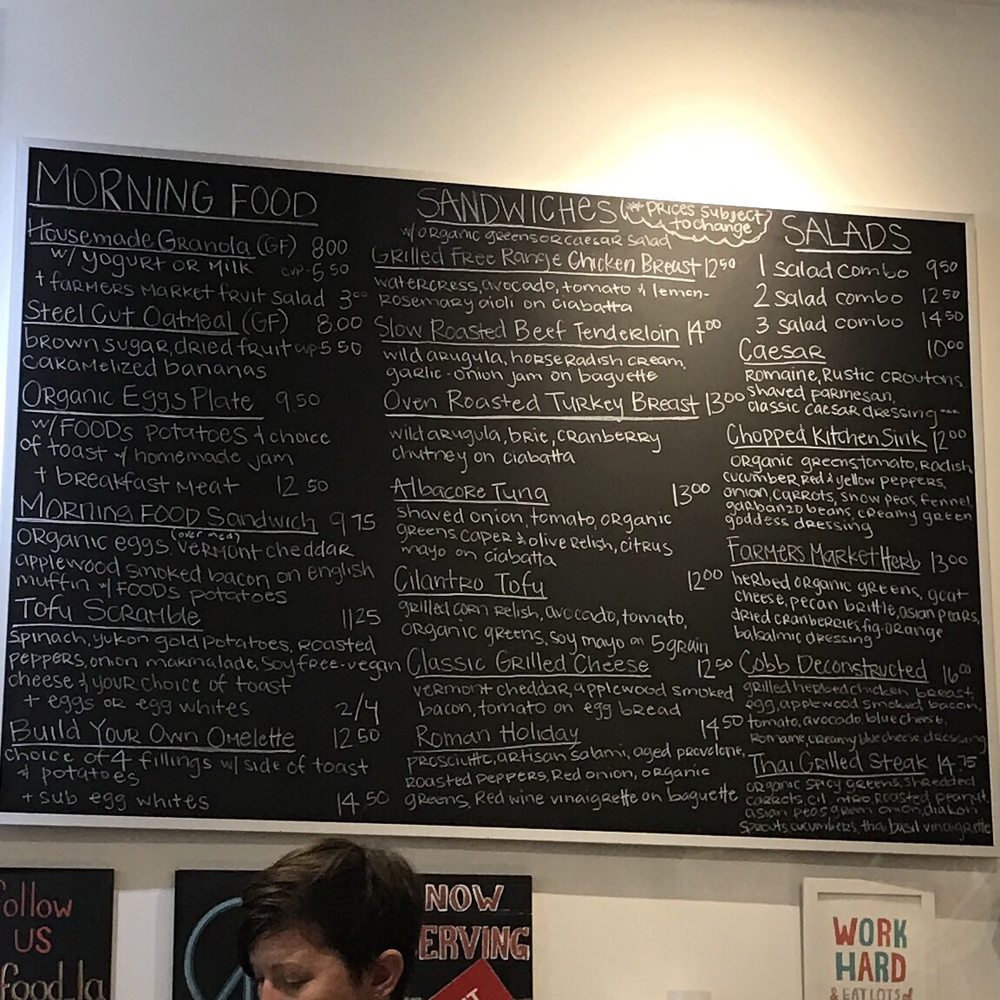 MORNING FOOD
Housemade Granola (GF) 8.00
w/ yogurt or milk cup-5.50
+ farmers market fruit salad 3.00
Steel Cut Oatmeal (GF) 8.00
brown sugar, dried fruit cup 5.50
caramelized bananas
Organic Eggs Plate 9.50
w/ FOODs potatoes & choice
of toast w/ homemade jam
+ breakfast meat 12.50
Morning FOOD Sandwich 9.75
organic eggs, (over med) vermont cheddar
applewood smoked bacon, on english
muffin w/ FOODS potatoes
Tofu Scramble 11.25
spinach, yukon gold potatoes, roasted
peppers, onion marmalade, soy free-vegan
cheese & your choice of toast
+ eggs or egg whites 2/4
Build Your Own Omelette 12.50
choice of 4 fillings w/ side of toast
& potatoes
+ sub egg whites 14.50
SANDWICHES
* prices subject
to change
w/ organic greens or caesar salad
Grilled Free Range Chicken Breast 12.50
watercress, avocado, tomato & lemon-
rosemary aioli on ciabatta
Slow Roasted Beef Tenderloin 14.00
wild arugula, horseradish cream,
garlic-onion jam on baguette
Oven Roasted Turkey Breast 13.00
wild arugula, brie, cranberry
chutney on ciabatta
Albacore Tuna 13.00
shaved onion, tomato, organic
greens, caper & olive relish, citrus
mayo on ciabatta
Cilantro Tofu 12.00
grilled corn relish, avocado, tomato,
organic greens, soy mayo on 5 grain
Classic Grilled Cheese 12.50
vermont cheddar, applewood smoked
bacon, tomato on egg bread
Roman Holiday 14.50
prosciutto, artisan salami, aged provolone,
roasted peppers, red onion, organic
greens, red wine vinaigrette on baguette
SALADS
1 salad combo 9.50
2 salad combo 12.50
3 salad combo 14.50
Caesar 10.00
Romaine, rustic croutons,
shaved parmesan,
classic caesar dressing
Chopped Kitchen Sink 12.00
organic greens tomato, radish
cucumber, red & yellow peppers,
onion, carrots, snow peas, fennel
garbanzo beans, creamy green
goddess dressing
Farmers Market Herb 13.00
herbed organic greens, goat
cheese, pecan brittle, asian pears,
dried cranberries, fig-orange
balsalmic dressing
Cobb Deconstructed 16.00
grilled herbed chicken breast,
egg, applewood smoked, bacon,
tomato, avocado blue cheese,
Romaine, creamy blue cheese dressing
Thai Grilled Steak 14.75
organic spicy greens, shredded
carrots, cilantro roasted peanut,
asian peas, green onion, diakon
sprouts, cucumbers, thai basil vinaigrette
follow
us
food_la
NOW
ERVING
WORK
HARD
& EAT LOTS of